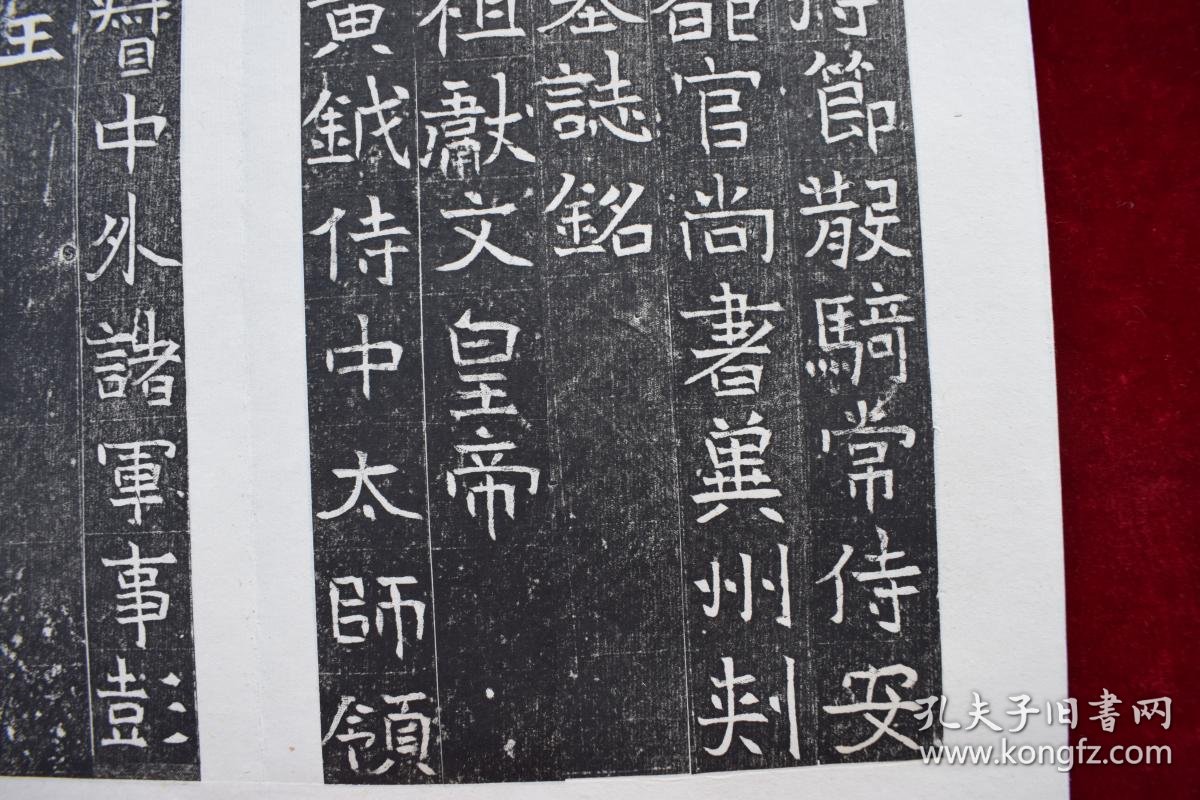 節散騎常侍安
官尚書冀州刺
誌銘
祖獻文皇帝
黃鉞侍中太師領
中外諸軍事彭
王
孔夫子旧书网
www.kongfz.com